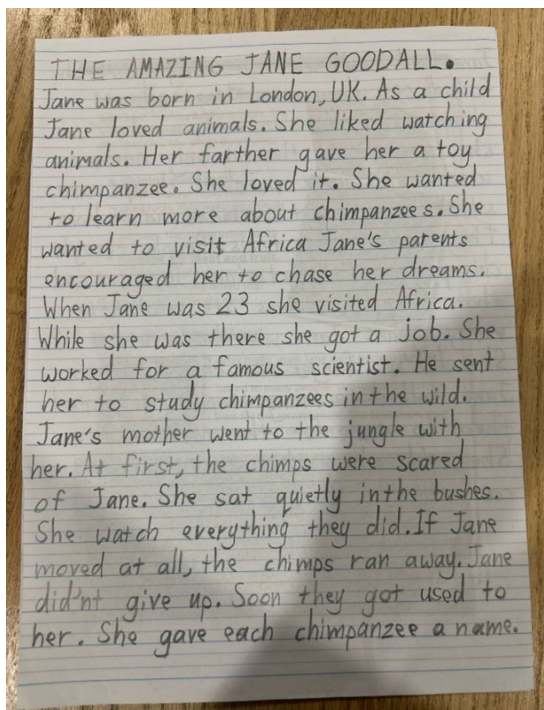 THE AMAZING JANE GOODALL.
Jane was born in London, UK. As a child
Jane loved animals. She liked watching
animals. Her farther gave her a toy
chimpanzee. She loved it. She wanted
to learn more about chimpanzees. She
wanted to visit Africa Jane's parents
encouraged her to chase her dreams.
When Jane was 23 she visited Africa.
While she was there she got a job. She
worked for a famous scientist. He sent
her to study chimpanzees in the wild.
Jane's mother went to the jungle with
her. At first, the chimps were scared
of Jane. She sat quietly in the bushes.
She watch everything they did. If Jane
moved at all, the chimps ran away. Jane
did'nt give up. Soon they got used to
her. She gave each chimpanzee a name.